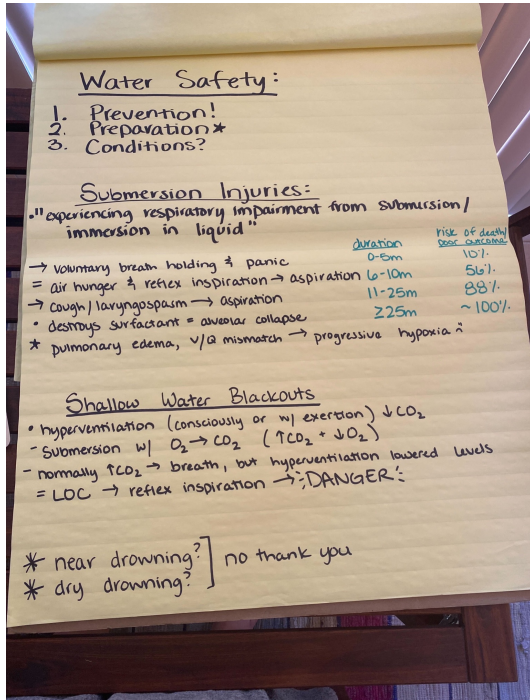 Water Safety:
1. Prevention!
2. Preparation*
3. Conditions?
Submersion Injuries:
• "experiencing respiratory impairment from submersion/
immersion in liquid"
→ voluntary breath holding & panic
= air hunger & reflex inspiration → aspiration
→ cough/laryngospasm → aspiration
• destroys surfactant = alveolar collapse
* pulmonary edema, V/Q mismatch → progressive hypoxia
duration risk of death/
poor outcome
0-5m 10%
6-10m 56%
11-25m 88%
≥25m ~100%
Shallow Water Blackouts
• hyperventilation (consciously or w/ exertion) ↓CO₂
- Submersion w/ O₂ → CO₂ (↑CO₂ + ↓O₂)
- normally ↑CO₂ → breath, but hyperventilation lowered levels
= LOC → reflex inspiration → DANGER
* near drowning?
* dry drowning?
] no thank you